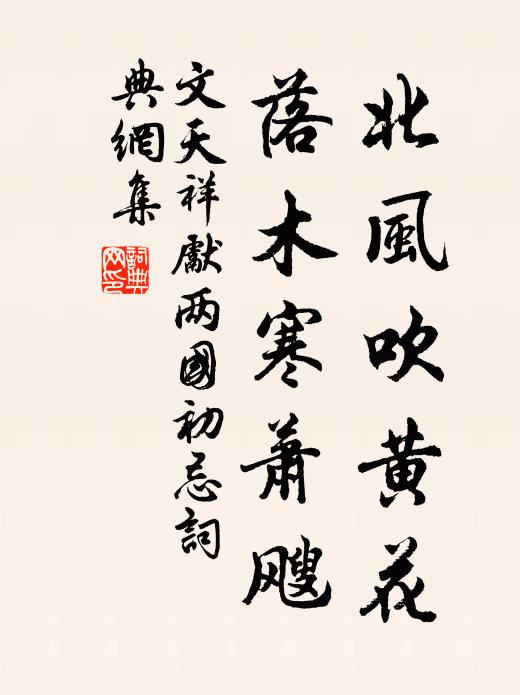 北風吹黄花
落木寒蕭颼
文天祥獻两國初忌詞
典網集
詞典
网印